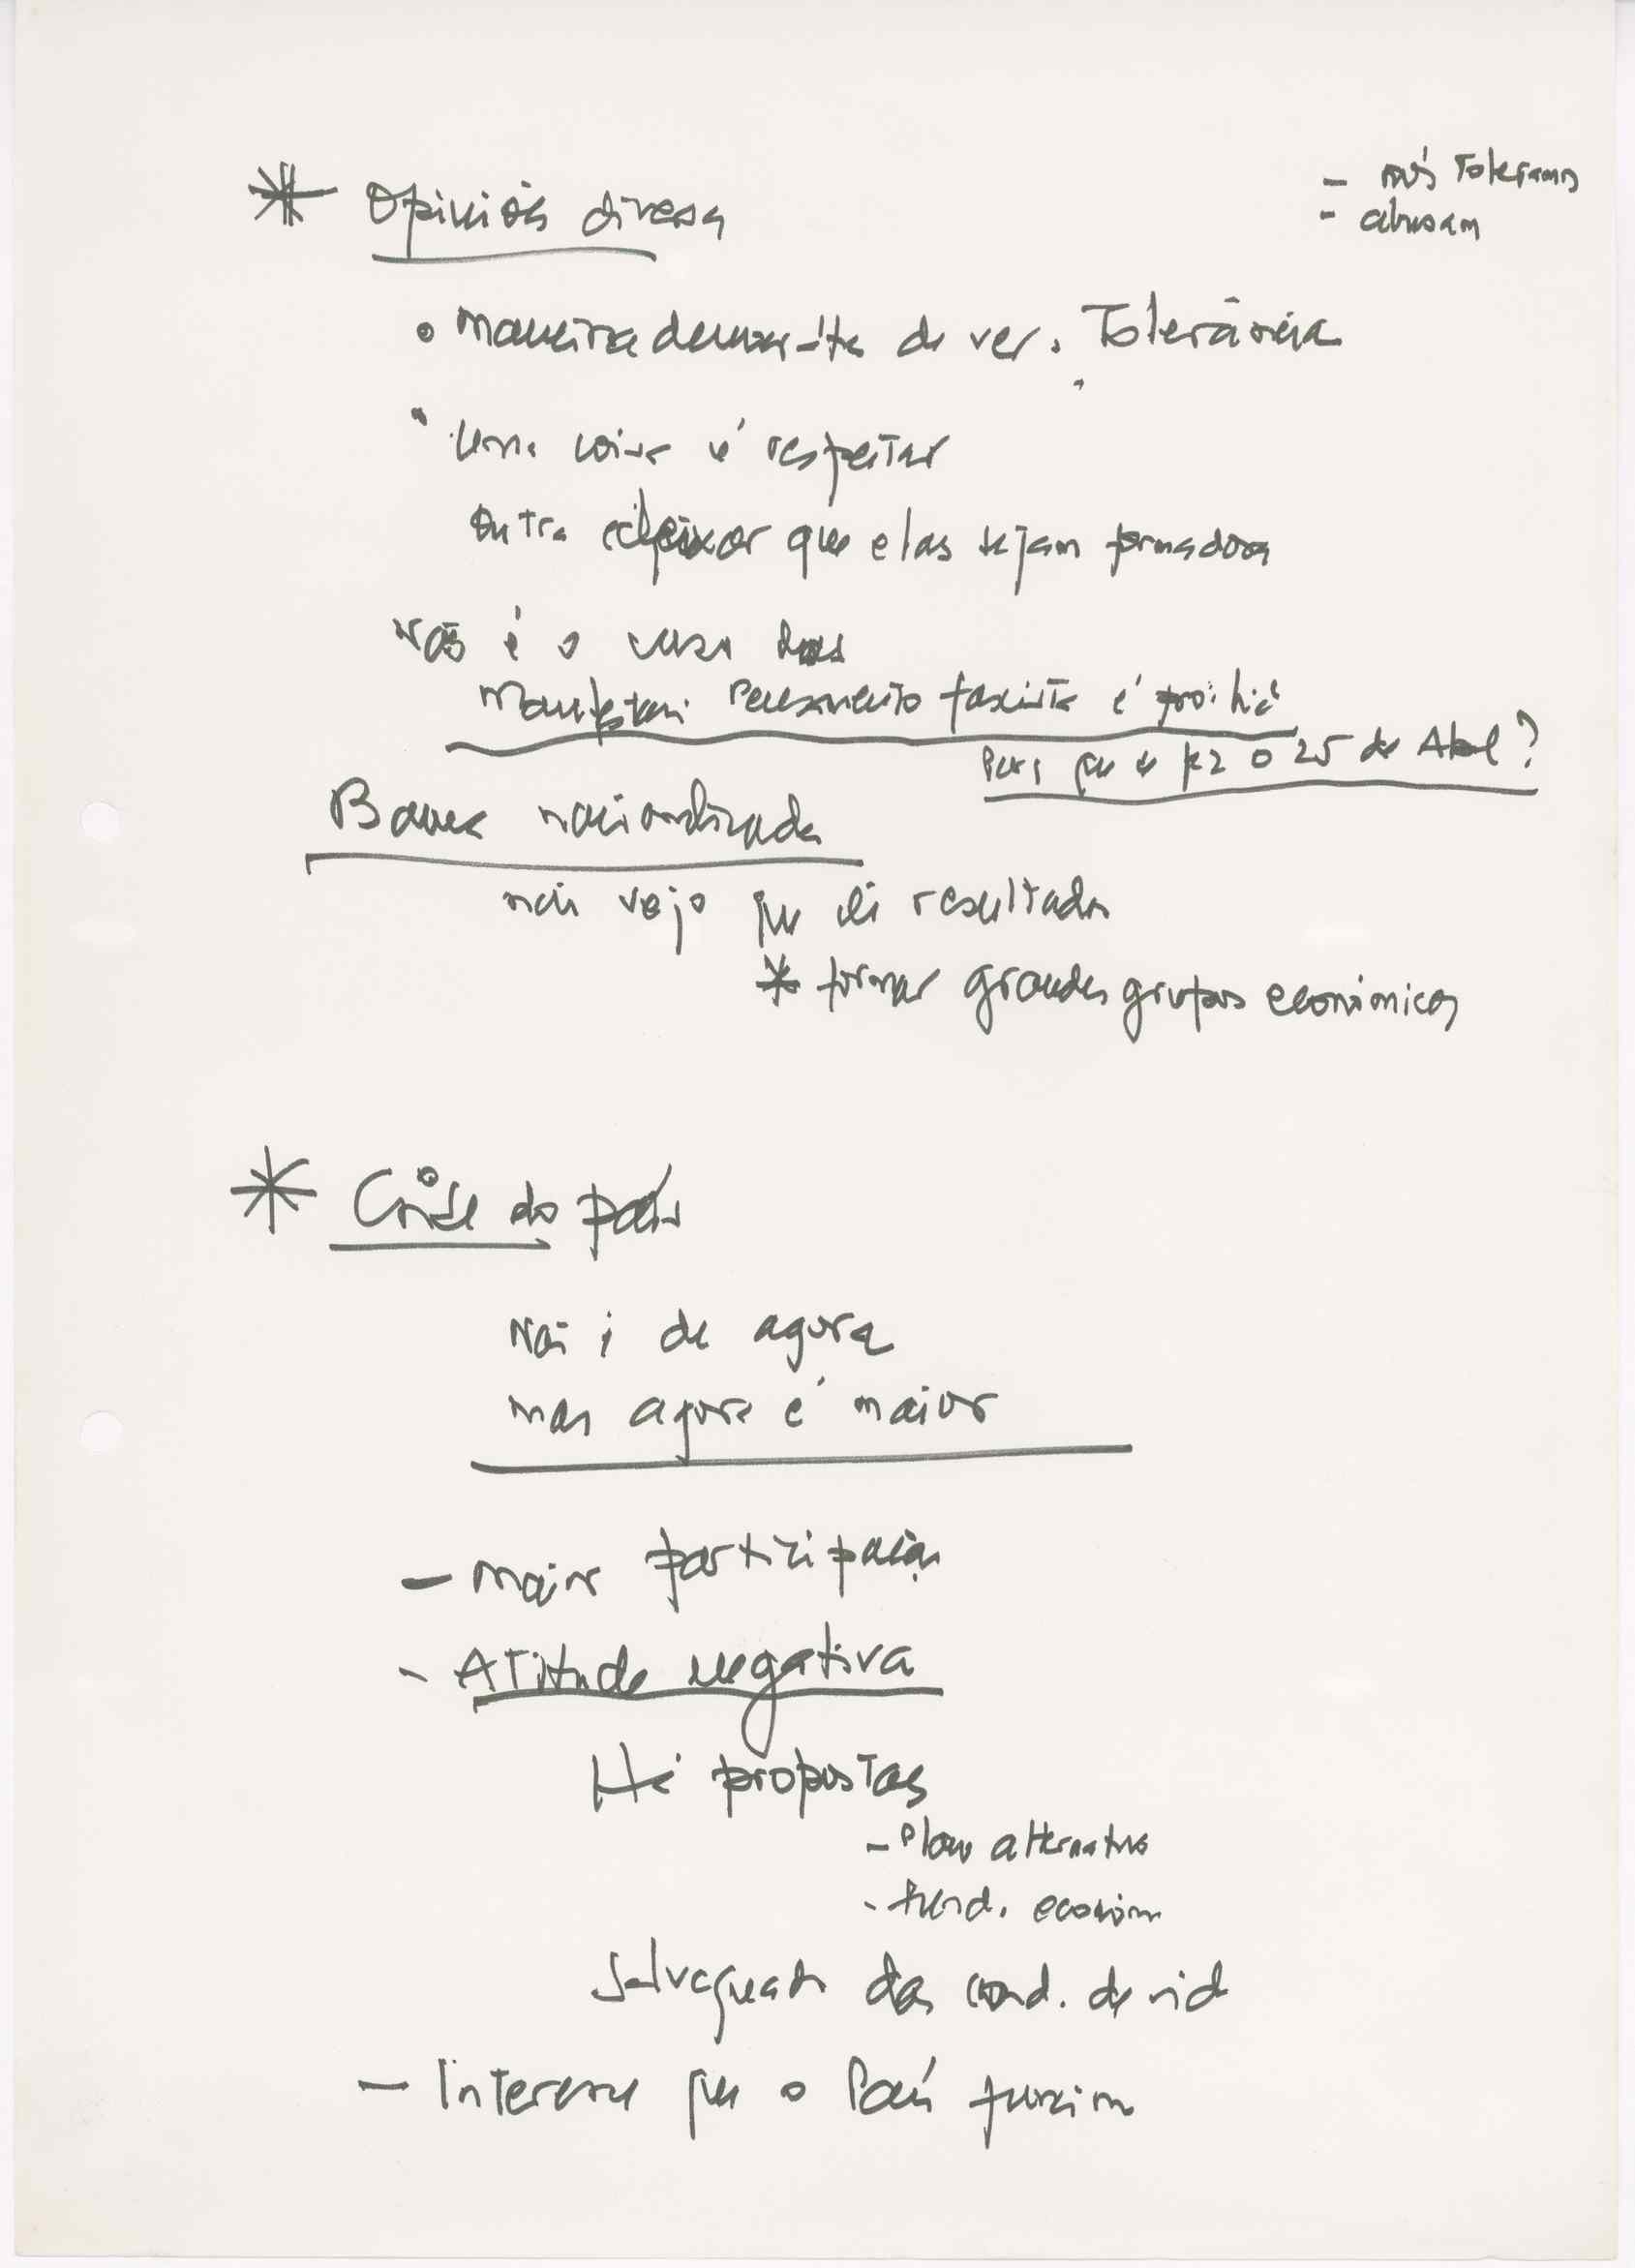 * Opiniões diversas
- nós toleramos
- abusam
• Maneira democrática de ver. Tolerância
• Uma coisa é respeitar
Outra deixar que elas sejam formadoras
Não é o caso
Manifestar pensamento fascista é proibido
Para que se fez o 25 de Abril?
Banca nacionalizada
não vejo que dê resultado
* formar grandes grupos económicos
* Crise do país
Não é de agora
mas agora é maior
- maior participação
- Atitude negativa
Há propostas
- Plano alternativo
- fund. económ
Salvaguarda das cond. de vida
- Interesse que o País funcione